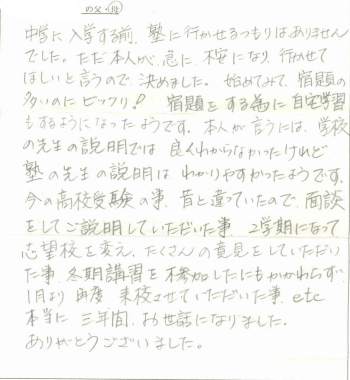 の父・母
中学に入学する前、塾に行かせるつもりはありません
でした。ただ本人が、急に不安になり、行かせて
ほしいと言うので、決めました。始めてみて、宿題の
多いのにビックリ! 宿題をする為に自宅学習
もするようになったようです。本人が言うには、学校
の先生の説明では良くわからなかったけれど
塾の先生の説明はわかりやすかったようです。
今の高校受験の事、昔と違っていたので、面談
をしてご説明していただいた事、2学期になって
志望校を変え、たくさんの意見をしていただい
た事、冬期講習を不参加したにもかかわらず
1月より再度来校させていただいた事、etc
本当に三年間、お世話になりました。
ありがとうございました。